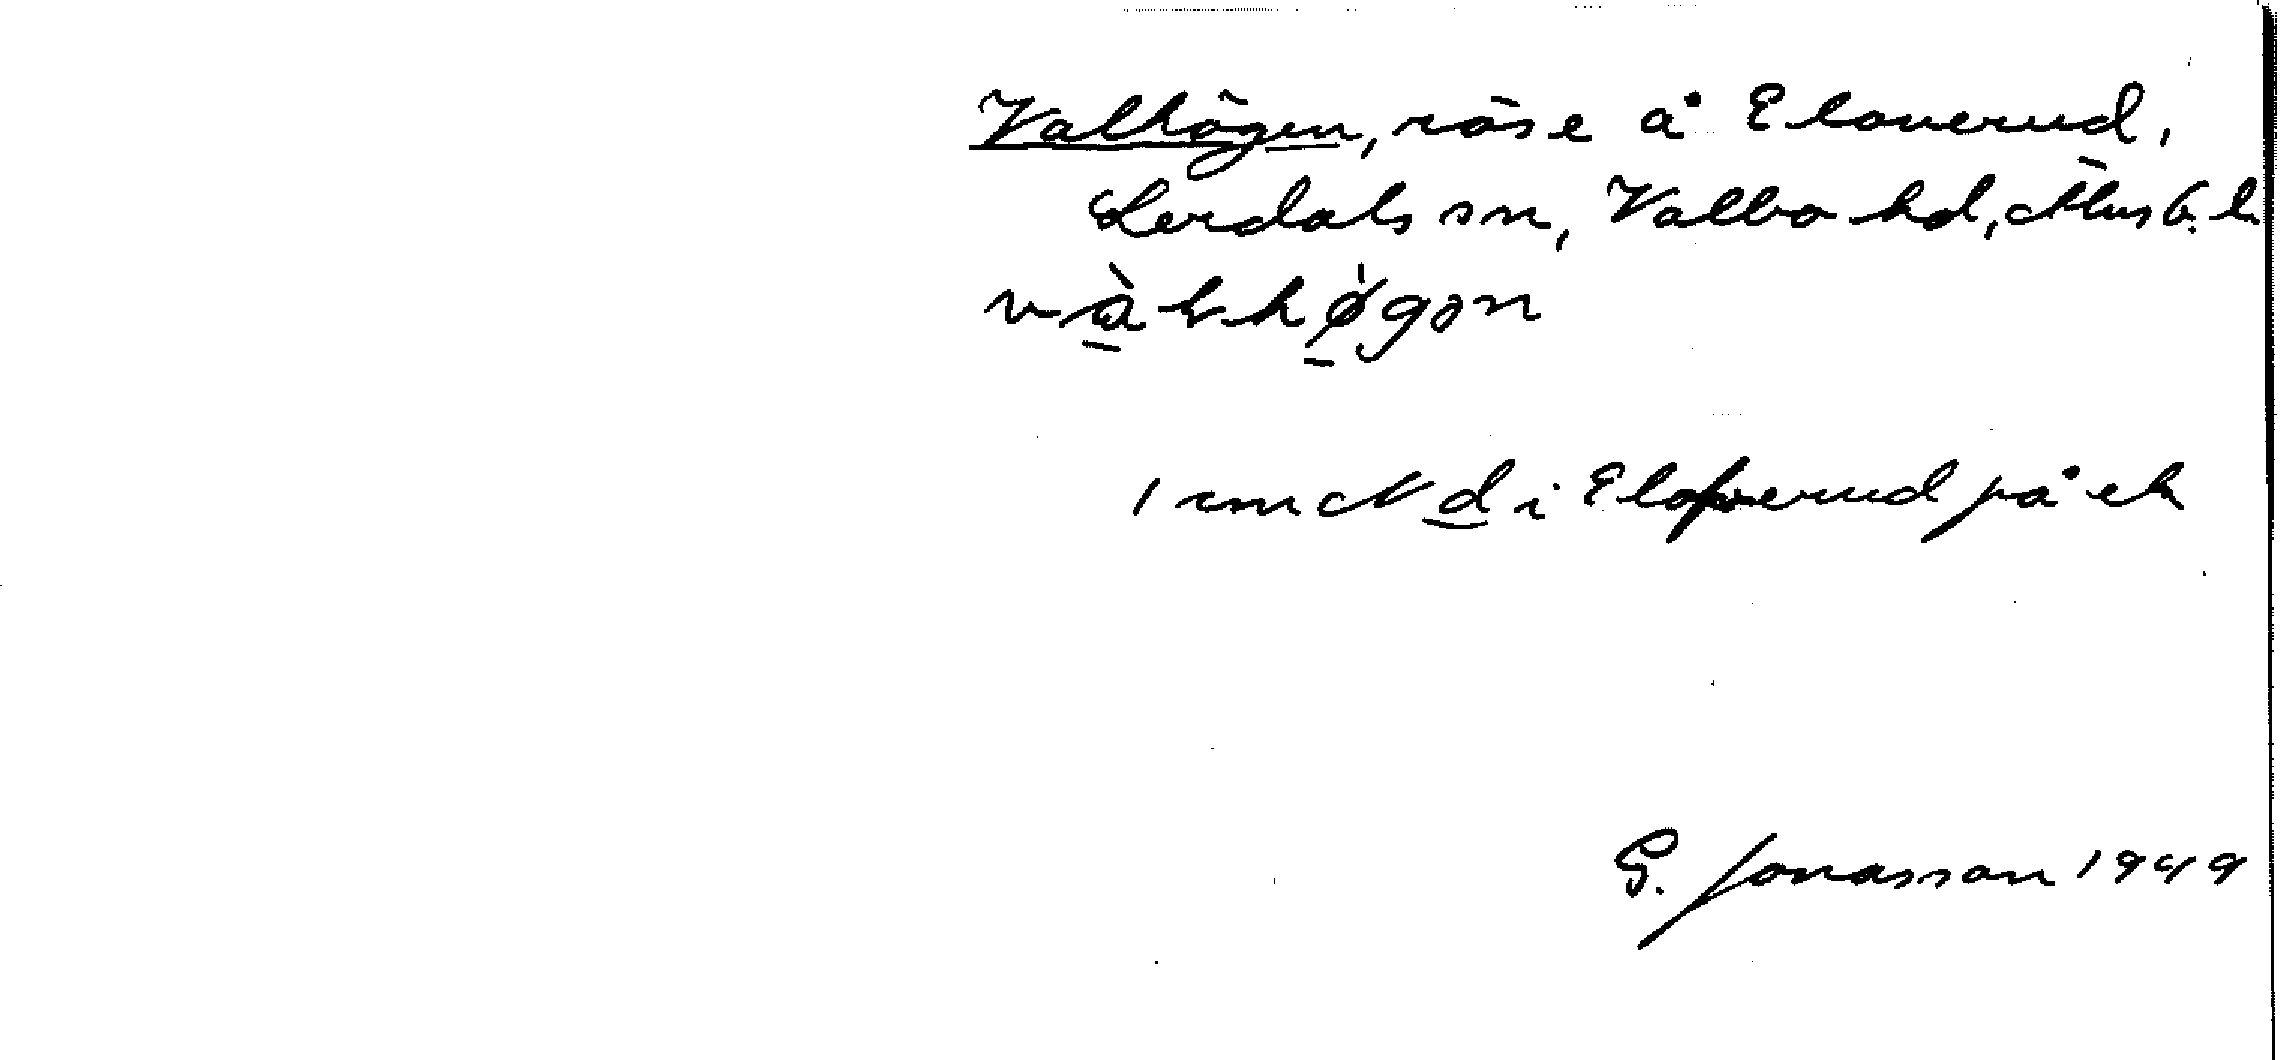 Valhögen, röse å Eloverud,
Lerdals sn, Valbo hd, Älvsb. l.
vàlhø̀gən
1 cm N d i Eloverud på ek
G. Jonasson 1949